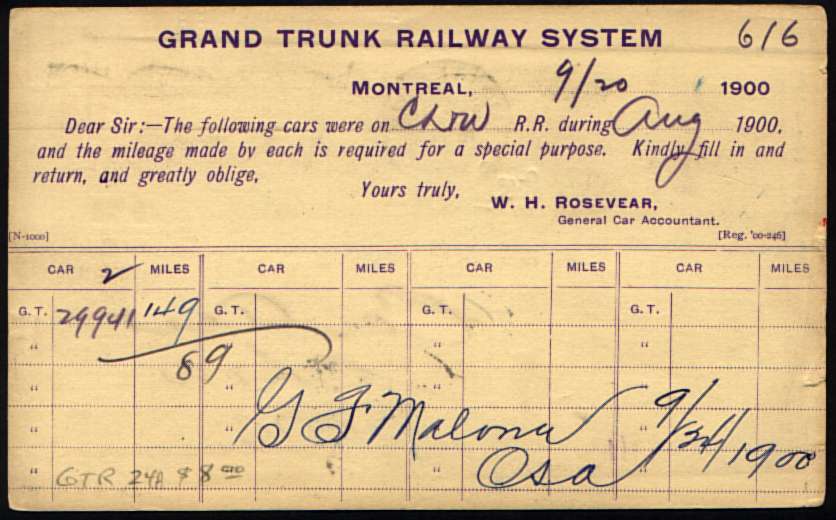 GRAND TRUNK RAILWAY SYSTEM 616
MONTREAL, 9/20 1900
Dear Sir:—The following cars were on R.R. during Aug 1900,
and the mileage made by each is required for a special purpose. Kindly fill in and
return, and greatly oblige,
Yours truly,
W. H. ROSEVEAR,
General Car Accountant.
[N-1000] [Reg. '00-246]
CAR 2 MILES CAR MILES CAR MILES CAR MILES
G. T. 29941 149 G. T. G. T. G. T.
" " " "
89
" " " "
" " " "
G F Malone 9/24/1900
" " " "
GTR 24A $8.00